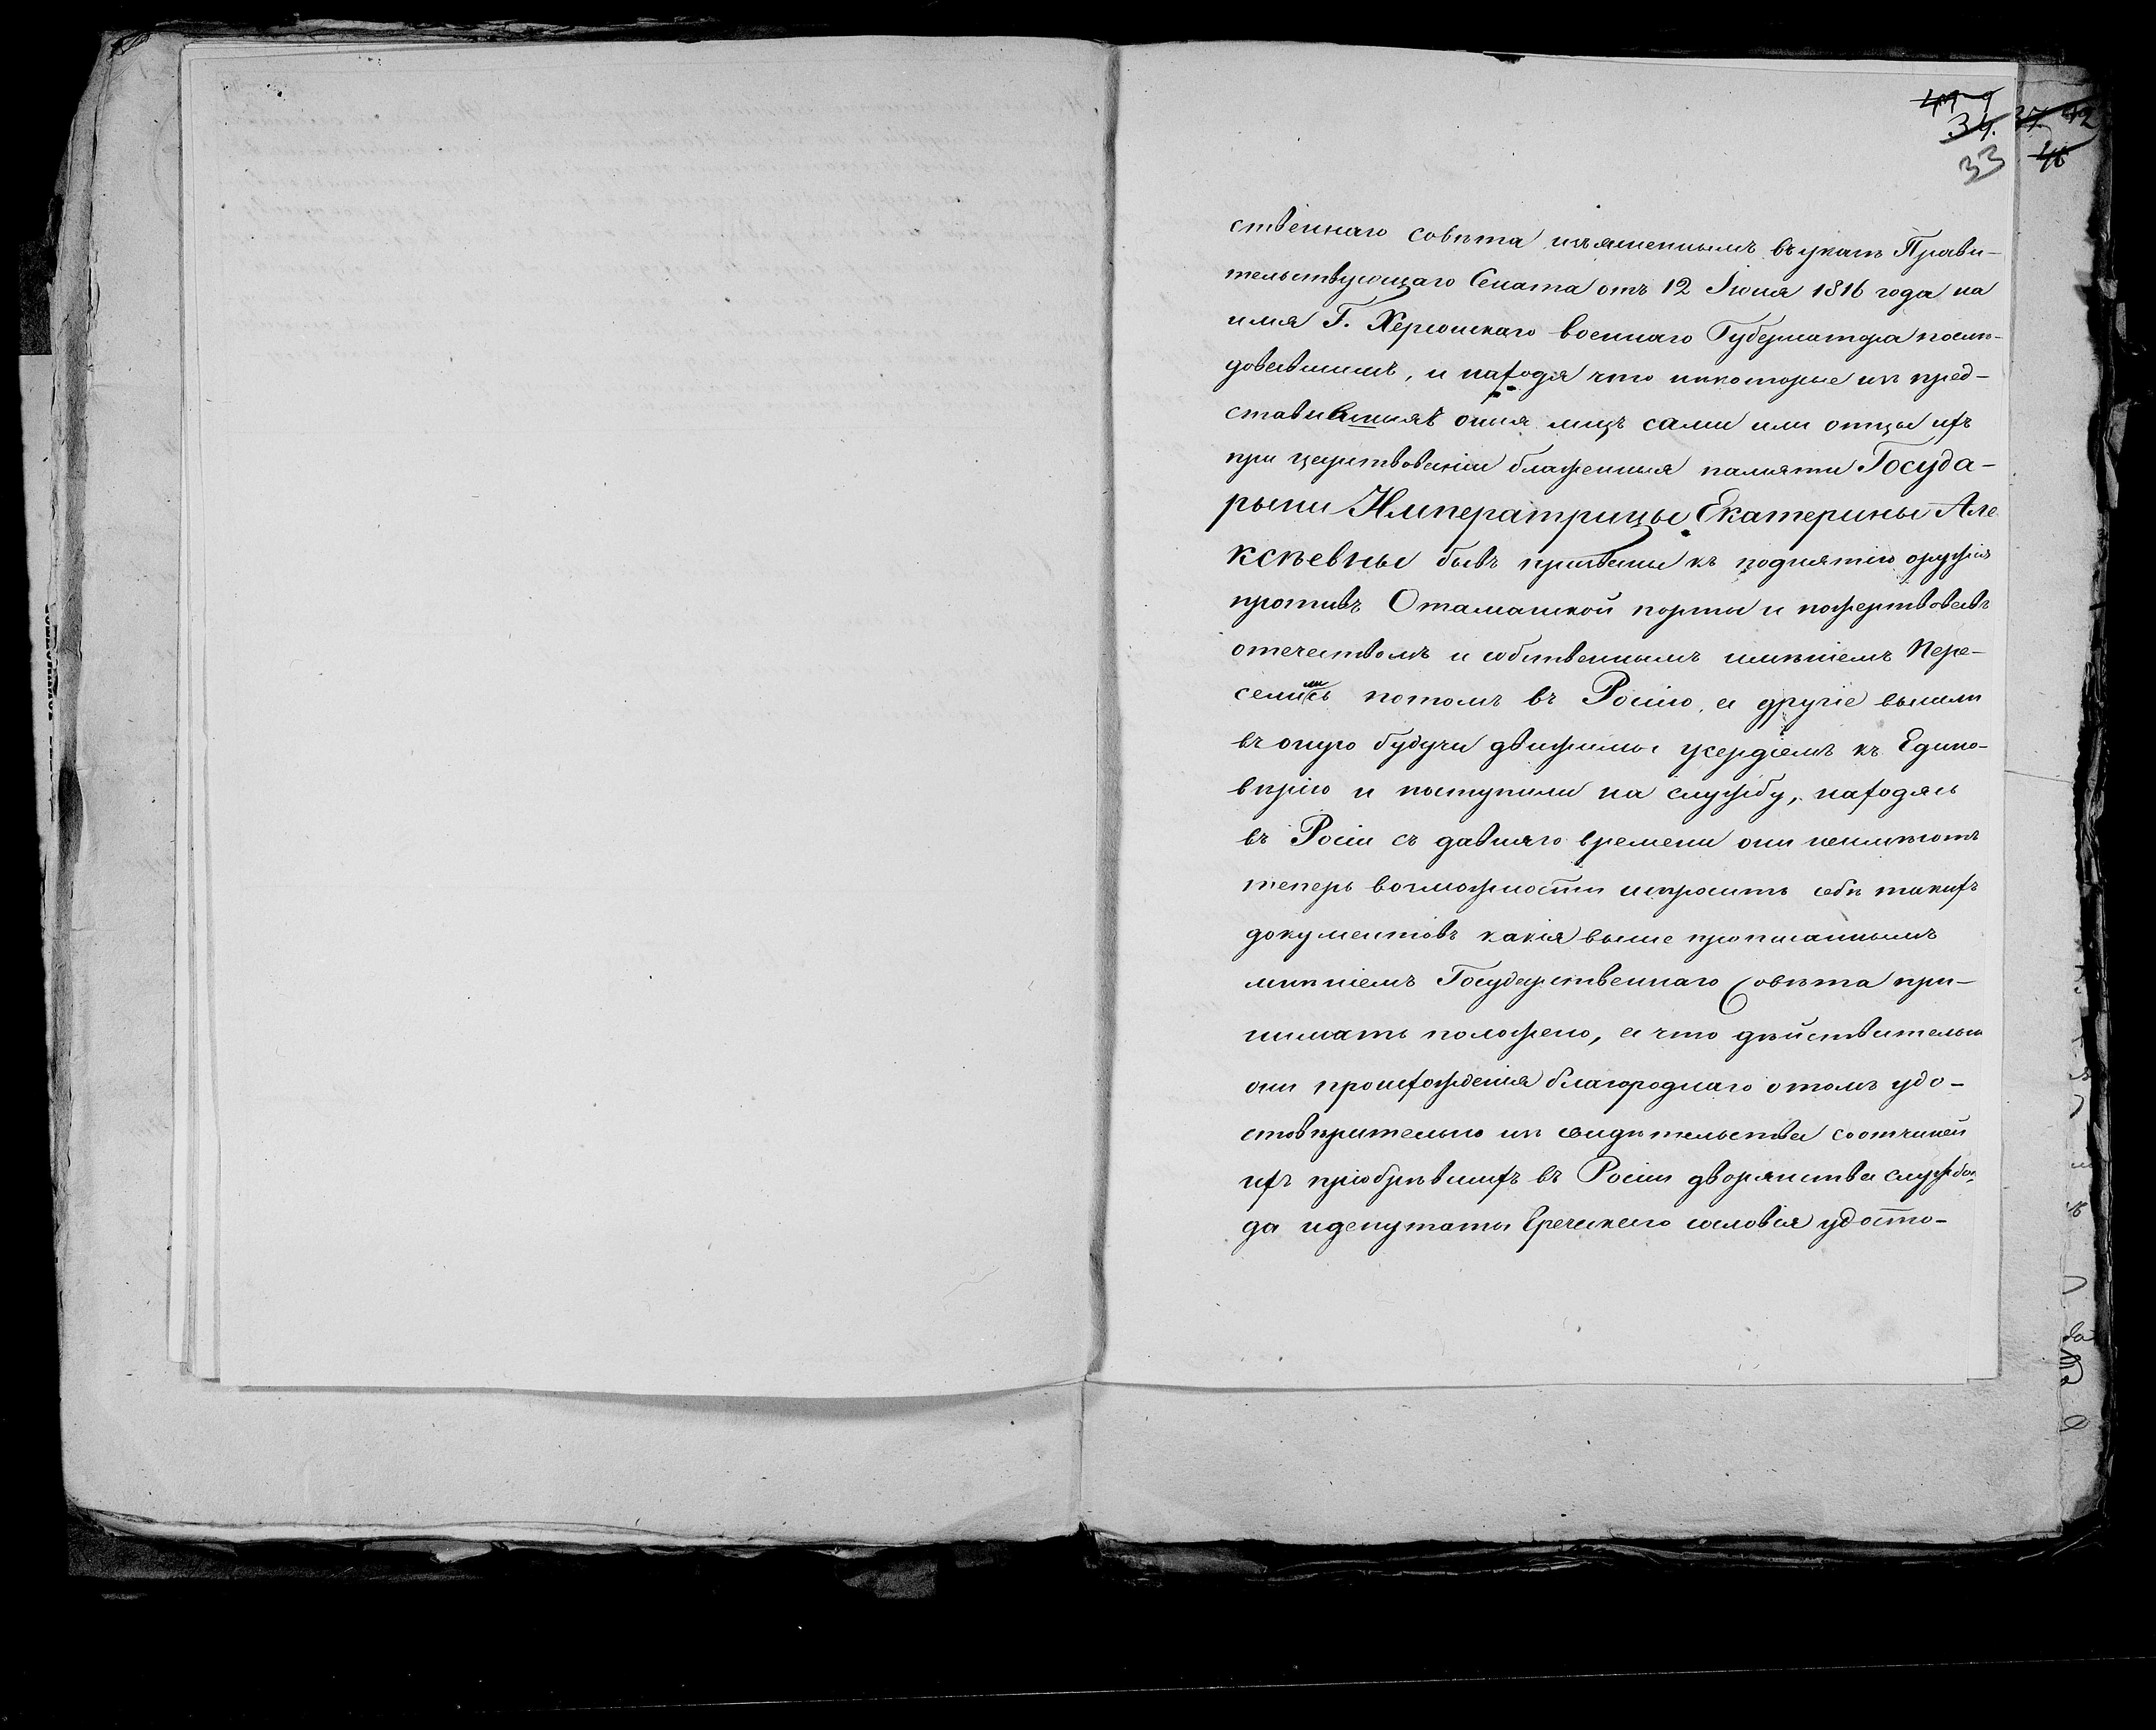 33
ственнаго совѣта изъясненнымъ въ указѣ Прави-
тельствующаго Сената отъ 12 Іюня 1816 года на
имя Г. Херсонскаго военнаго Губернатора послѣ-
довавшимъ, и находя что нѣкоторые из пред-
ставившихъ оныя лицъ сами или отцы ихъ
при царствованіи блаженныя памяти Госуда-
рыни Императрицы Екатерины Але
ксѣевны бывъ призваны къ поднятію оружія
противъ Отаманской порты и пожертвовавъ
отечествомъ и собственнымъ имѣніемъ пере-
селились потомъ въ Росію, а другіе вышли
въ оную будучи движимы усердіемъ къ Едино-
вѣрію и поступили на службу, находясь
въ Росіи съ давняго времени они неимѣютъ
теперь возможности испросить себѣ такихъ
документовъ какія выше прописаннымъ
мнѣніемъ Государственнаго Совѣта при-
нимать положено, а что дѣйствительно
они происхожденія благороднаго отомъ удо-
стовѣрительно из свидѣтельства соотчичей
ихъ пріобрѣвшихъ въ Росіи дворянства службою,
да идепутаты Греческаго сословія удосто-